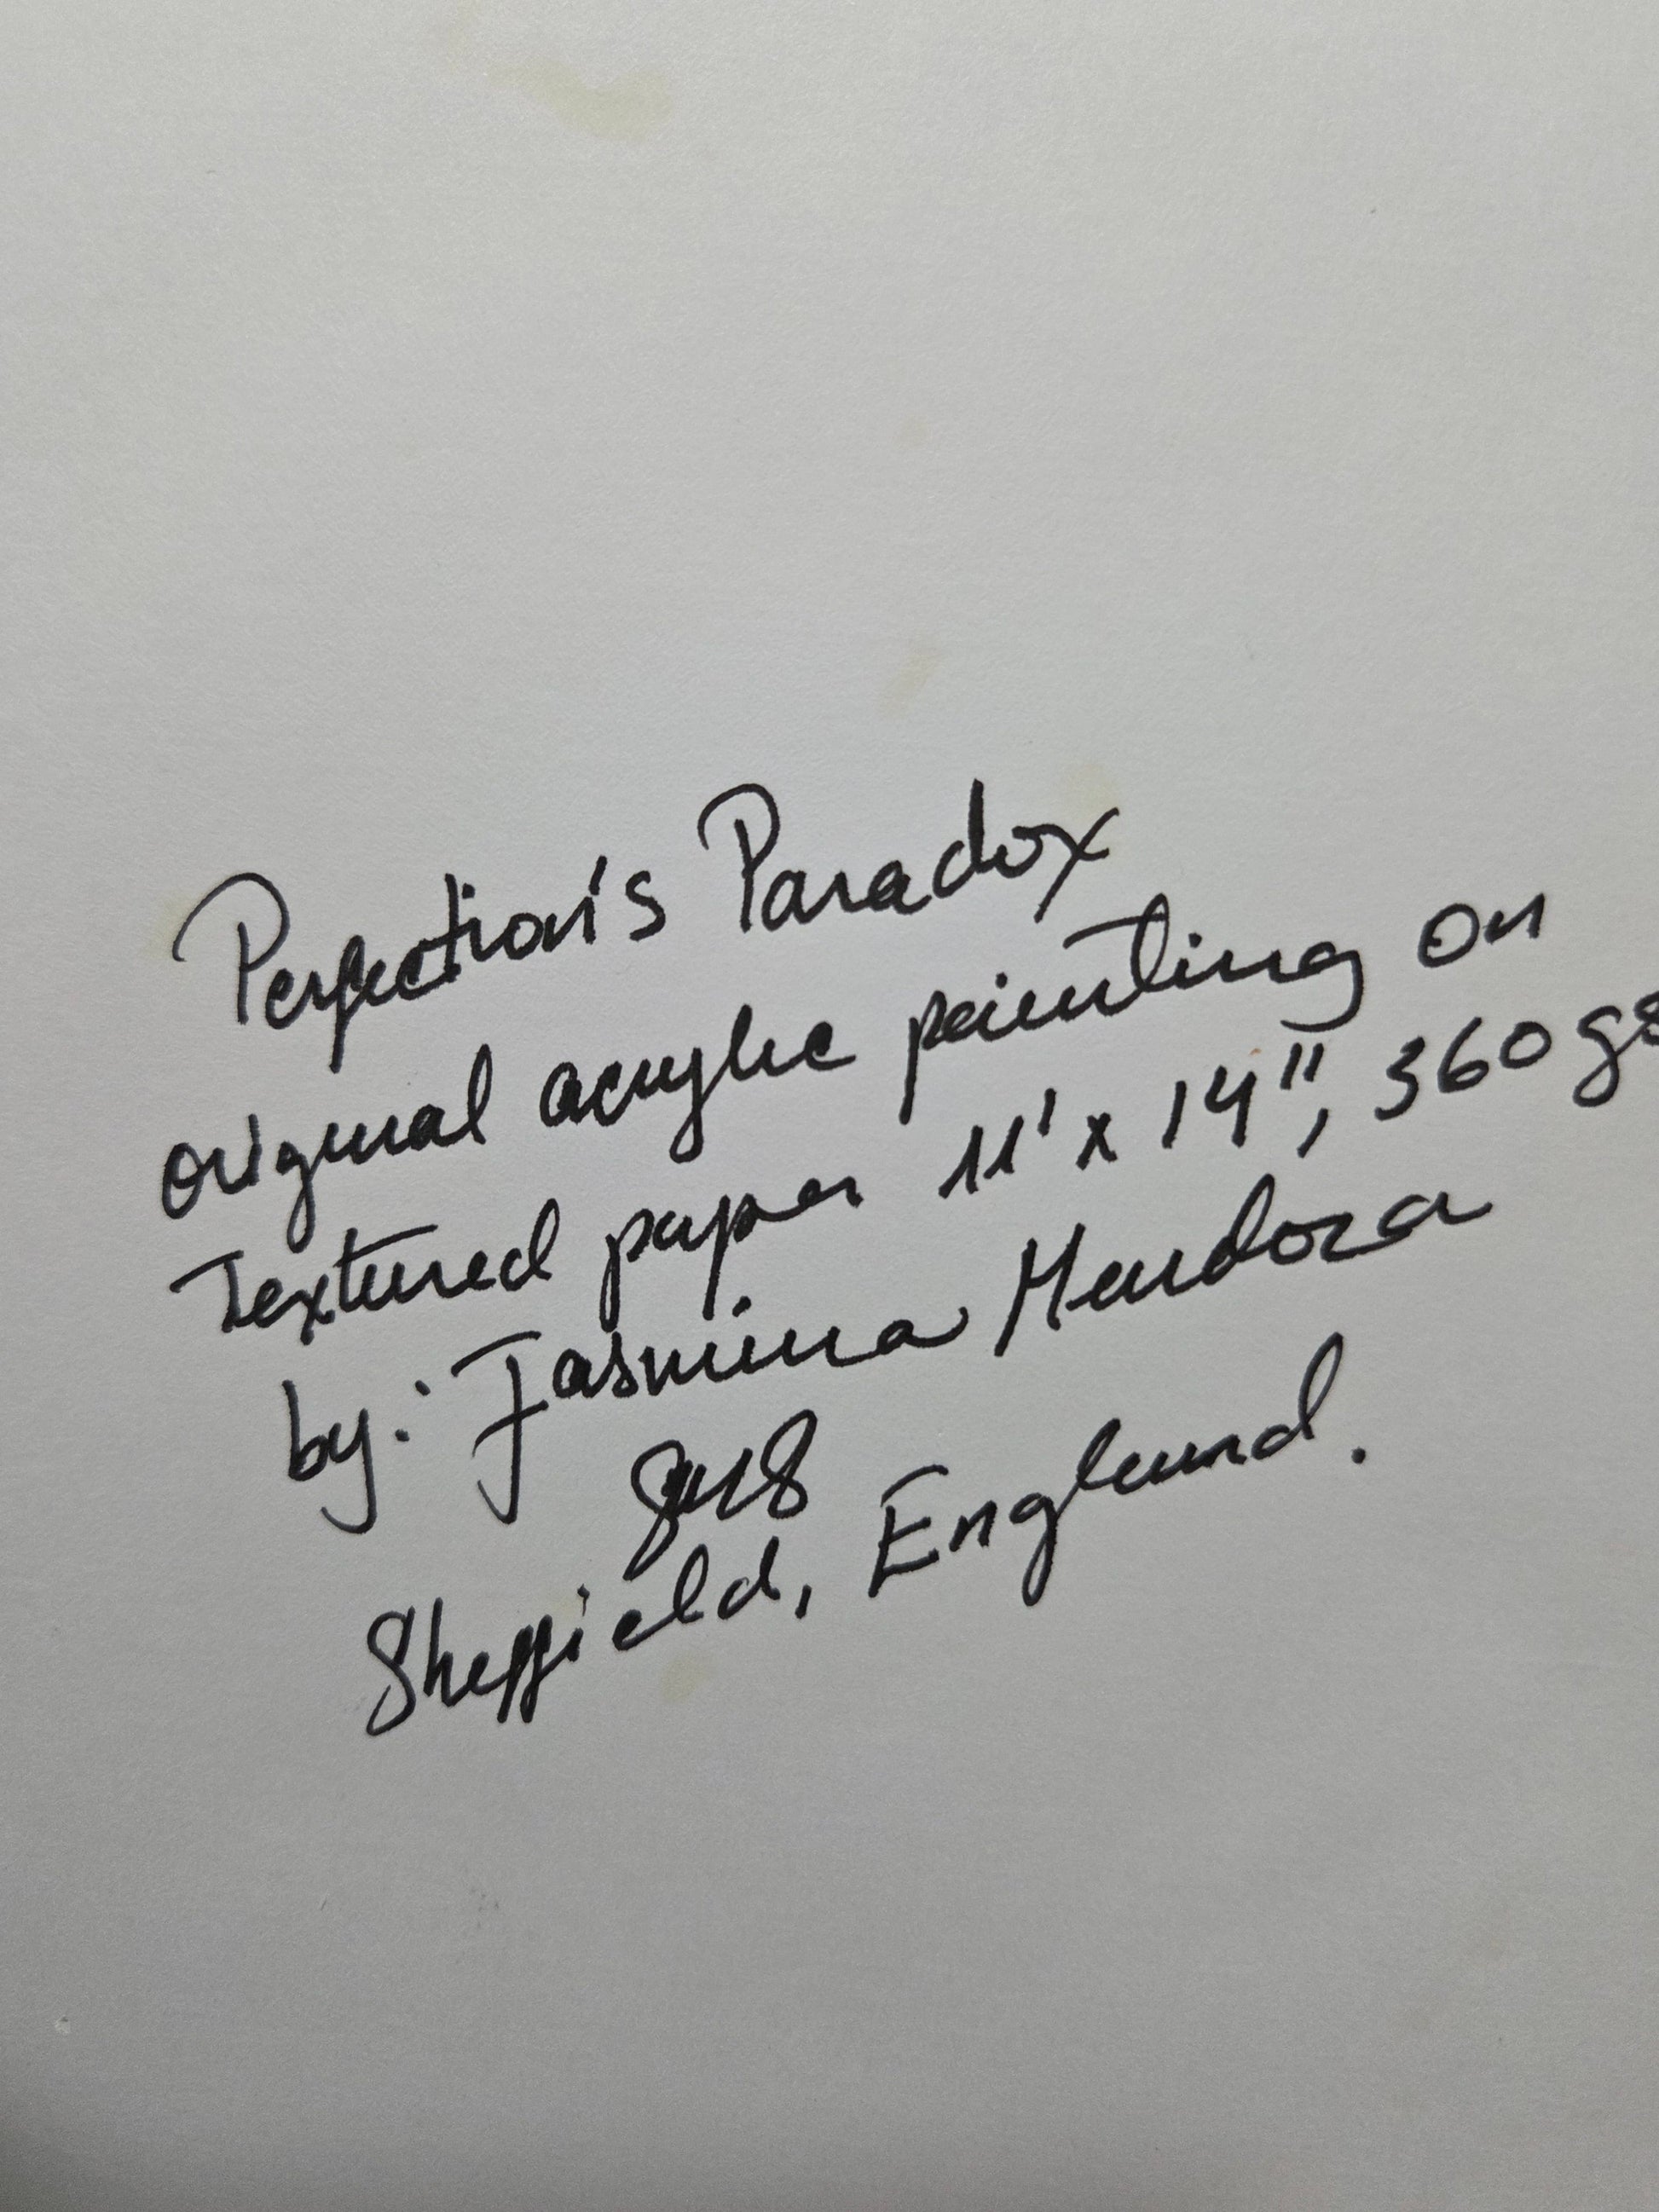 Perfection's Paradox
original acrylic painting on
Textured paper 11' x 14", 360
by: Jasmina Mendoza
Sheffield, England.